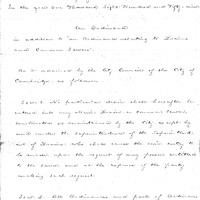 In the year One Thousand Eight Hundred and Fifty-nine
An Ordinance
In addition to "an Ordinance relating to Drains
and Common Sewers"
Be it ordained by the City Council of the City of
Cambridge as follows.
Sect 1. No particular drain shall hereafter be
entered into any main drain or common sewer,
constructed or maintained by the City except
under the superintendence of the Superintendent
of Drains who shall cause the same entry to
be made upon the request of any person entitled
to the same and at the expense of the party
making such request.
Sect 2. All Ordinances and parts of Ordinances